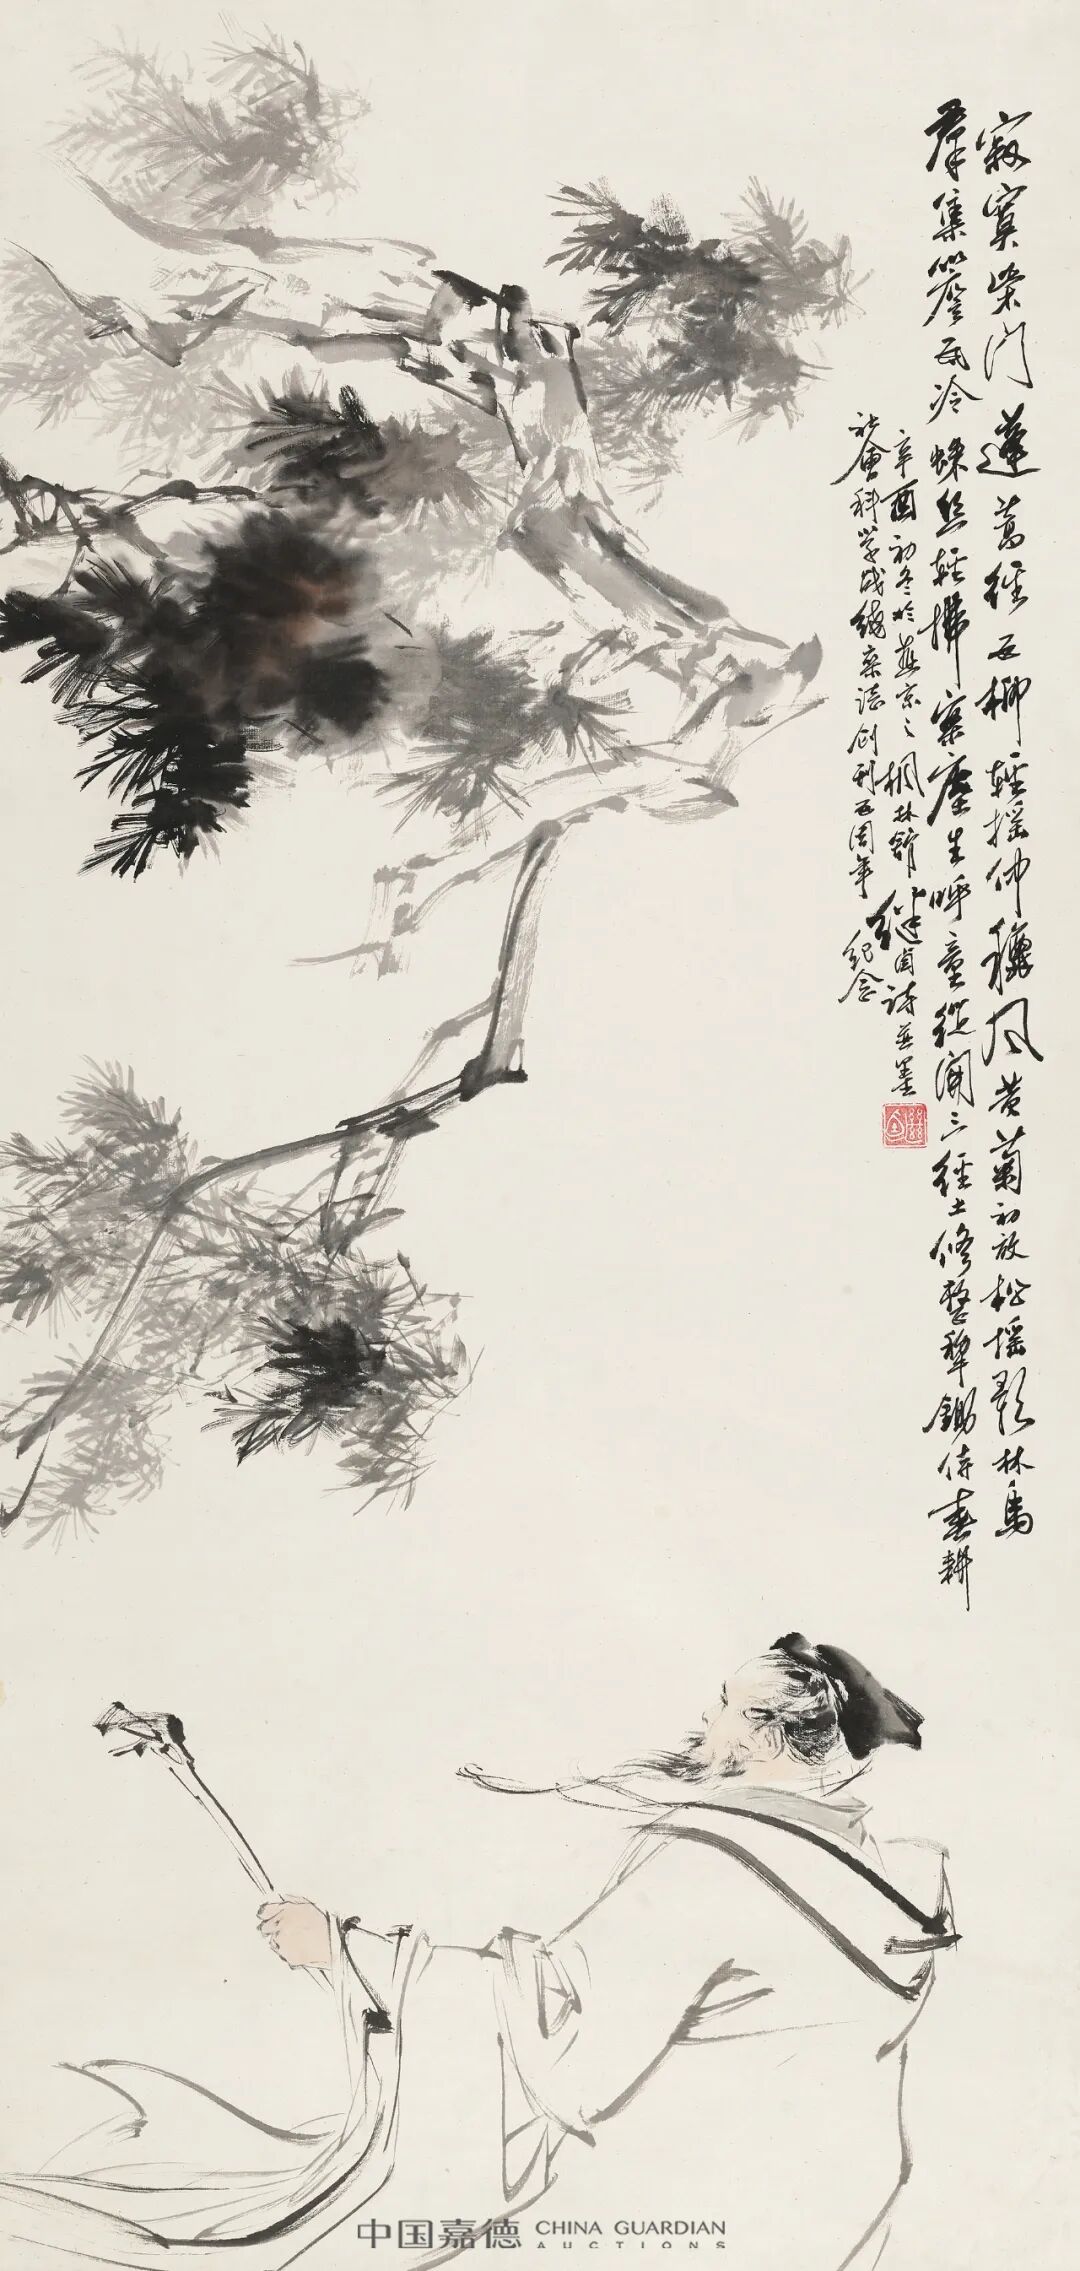 寂寞柴门蓬蒿径五柳轻摇仲穗风黄菊初放松摇影林鸟
群集簷瓦冷蛛丝轻拂案尘生呼童纵开三径土修整犁锄待春耕
辛酉初冬於燕京之枫林馆继卣诗并墨
社会科学战线杂誌创刊五周年纪念
中国嘉德 CHINA GUARDIAN
AUCTIONS